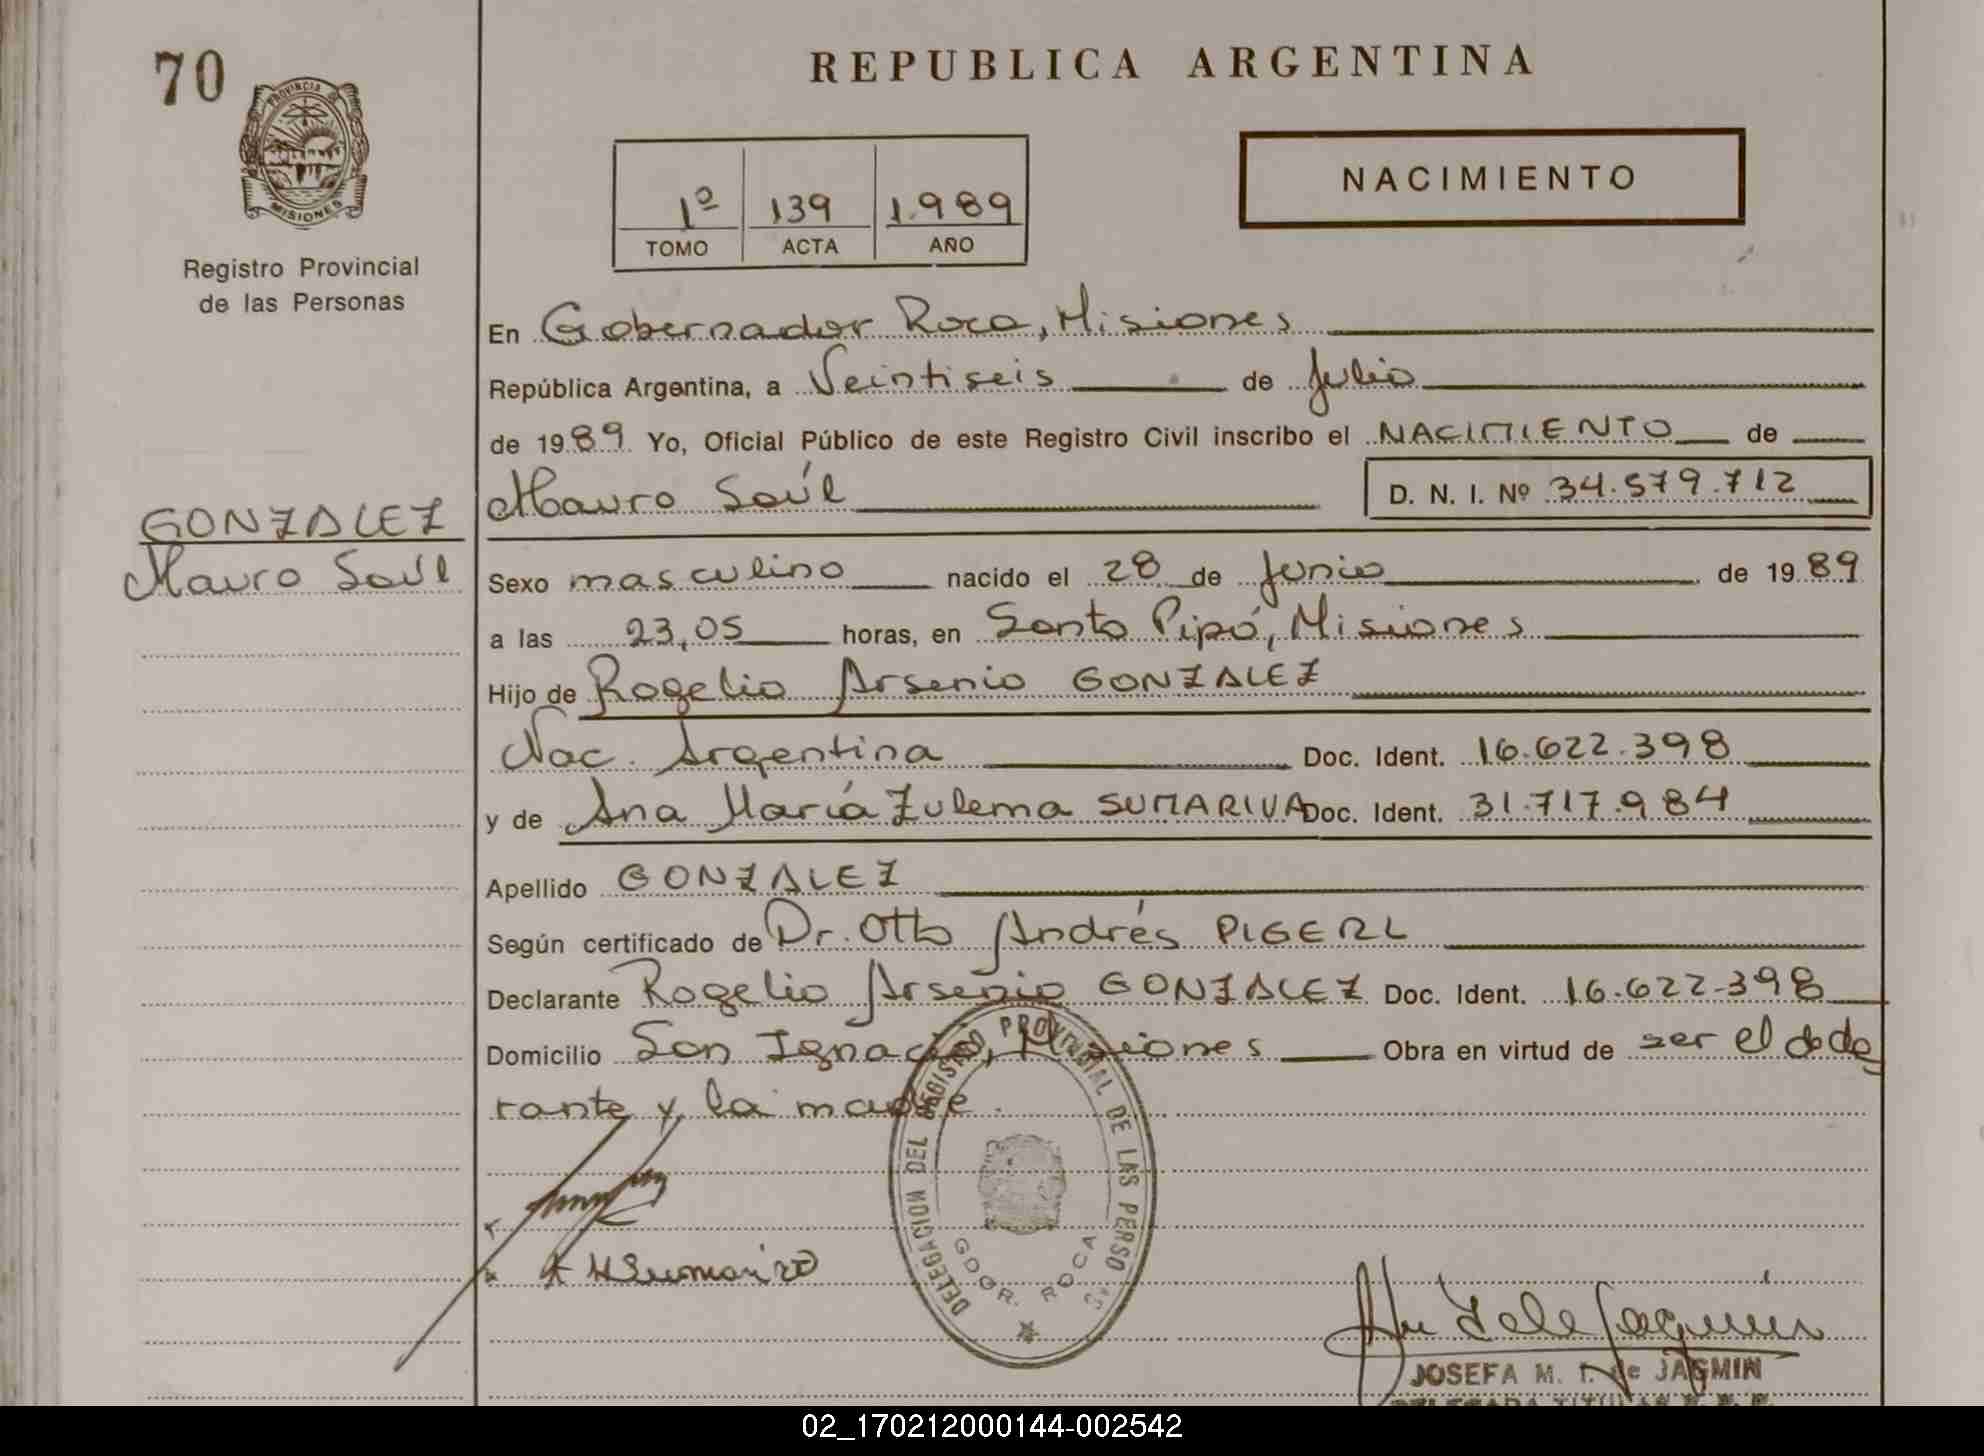 70
PROVINCIA DE
MISIONES
Registro Provincial
de las Personas
GONZALEZ
Mauro Saúl
REPUBLICA ARGENTINA
1º 139 1.989
TOMO ACTA AÑO
NACIMIENTO
En Gobernador Roca, Misiones
República Argentina, a Veintiseis de Julio
de 1989 Yo, Oficial Público de este Registro Civil inscribo el NACIMIENTO de
Mauro Saúl D. N. I. Nº 34.579.712
Sexo masculino nacido el 28 de Junio de 1989
a las 23,05 horas, en Santo Pipó, Misiones
Hijo de Rogelio Arsenio GONZALEZ
Nac. Argentina Doc. Ident. 16.622.398
y de Ana María Zulema SUMARIVA Doc. Ident. 31.717.984
Apellido GONZALEZ
Según certificado de Dr. Otto Andrés PIGERL
Declarante Rogelio Arsenio GONZALEZ Doc. Ident. 16.622.398
Domicilio San Ignacio, Misiones Obra en virtud de ser el decla
rante y la madre.
DELEGACION DEL REGISTRO PROVINCIAL DE LAS PERSONAS
GDOR. ROCA
JOSEFA M. T. de JAGMIN
DELEGADA TITULAR R. P. P.
02_170212000144-002542